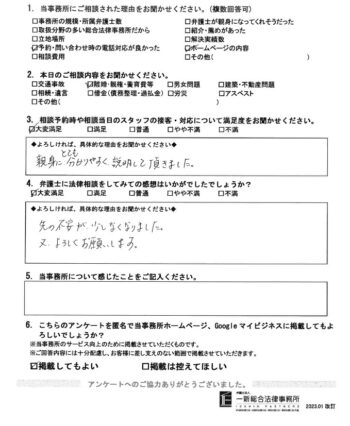 1. 当事務所にご相談された理由をお聞かせください。(複数回答可)
□事務所の規模・所属弁護士数 □弁護士が親身になってくれそうだった
□取扱分野の多い総合法律事務所だから □紹介・薦めがあった
□立地場所 □解決実績数
☑予約・問い合わせ時の電話対応が良かった ☑ホームページの内容
□相談費用 □その他( )
2. 本日のご相談内容をお聞かせください。
□交通事故 ☑離婚・親権・養育費等 □男女問題 □建築・不動産問題
□相続・遺言 □借金(債務整理・過払金) □労災 □アスベスト
□その他( )
3. 相談予約時や相談当日のスタッフの接客・対応について満足度をお聞かせください。
☑大変満足 □満足 □普通 □やや不満 □不満
◆よろしければ、具体的な理由をお聞かせください◆
とても
親身に分かりやすく説明して頂きました。
4. 弁護士に法律相談をしてみての感想はいかがでしたでしょうか?
☑大変満足 □満足 □普通 □やや不満 □不満
◆よろしければ、具体的な理由をお聞かせください◆
先の不安が少しなくなりました。
又、よろしくお願いします。
5. 当事務所について感じたことをご記入ください。
6. こちらのアンケートを匿名で当事務所ホームページ、Googleマイビジネスに掲載してもよ
ろしいでしょうか?
※当事務所のサービス向上のために掲載させていただくものです。
※ご回答内容には十分配慮し、お客様に差し支えのない範囲で掲載させていただきます。
☑掲載してもよい □掲載は控えてほしい
アンケートへのご協力ありがとうございました。
弁護士法人
一新総合法律事務所
ISSHIN PARTNERS
2023.01 改訂